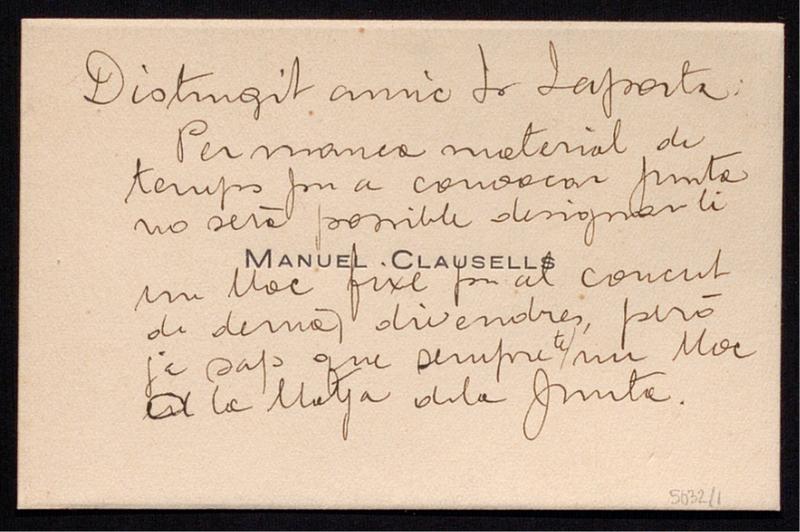 Distingit amic Sr Laporta:
Per manca material de
temps per a convocar Junta
no serà possible designar-li
MANUEL CLAUSELLS
un lloc fixe per al concert
de demà, divendres, però
ja sap que sempre té un lloc
a la llotja de la Junta.
5032/1